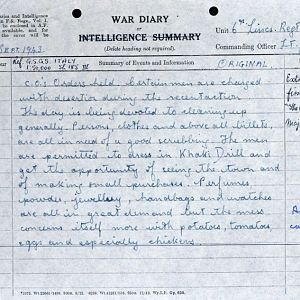 WAR DIARY
of
INTELLIGENCE SUMMARY
(Delete heading not required).
Unit 6th Lincs. Regt
Commanding Officer LT.
Month and Year Sept. 1943
Ref. G.S.G.S. ITALY
Summary of Events and Information
ORIGINAL
C.O.'s Orders held. Certain men are charged
with desertion during the recent action
The day is being devoted to cleaning up
generally. Persons, clothes and above all billets,
are all in need of a good scrubbing. The men
are permitted to dress in Khaki Drill and
get the opportunity of seeing the town and
of making small purchases. Perfumes,
powder, jewellery, handbags and watches
are all in great demand but the mess
concerns itself more with potatoes, tomatoes,
eggs and especially chickens.